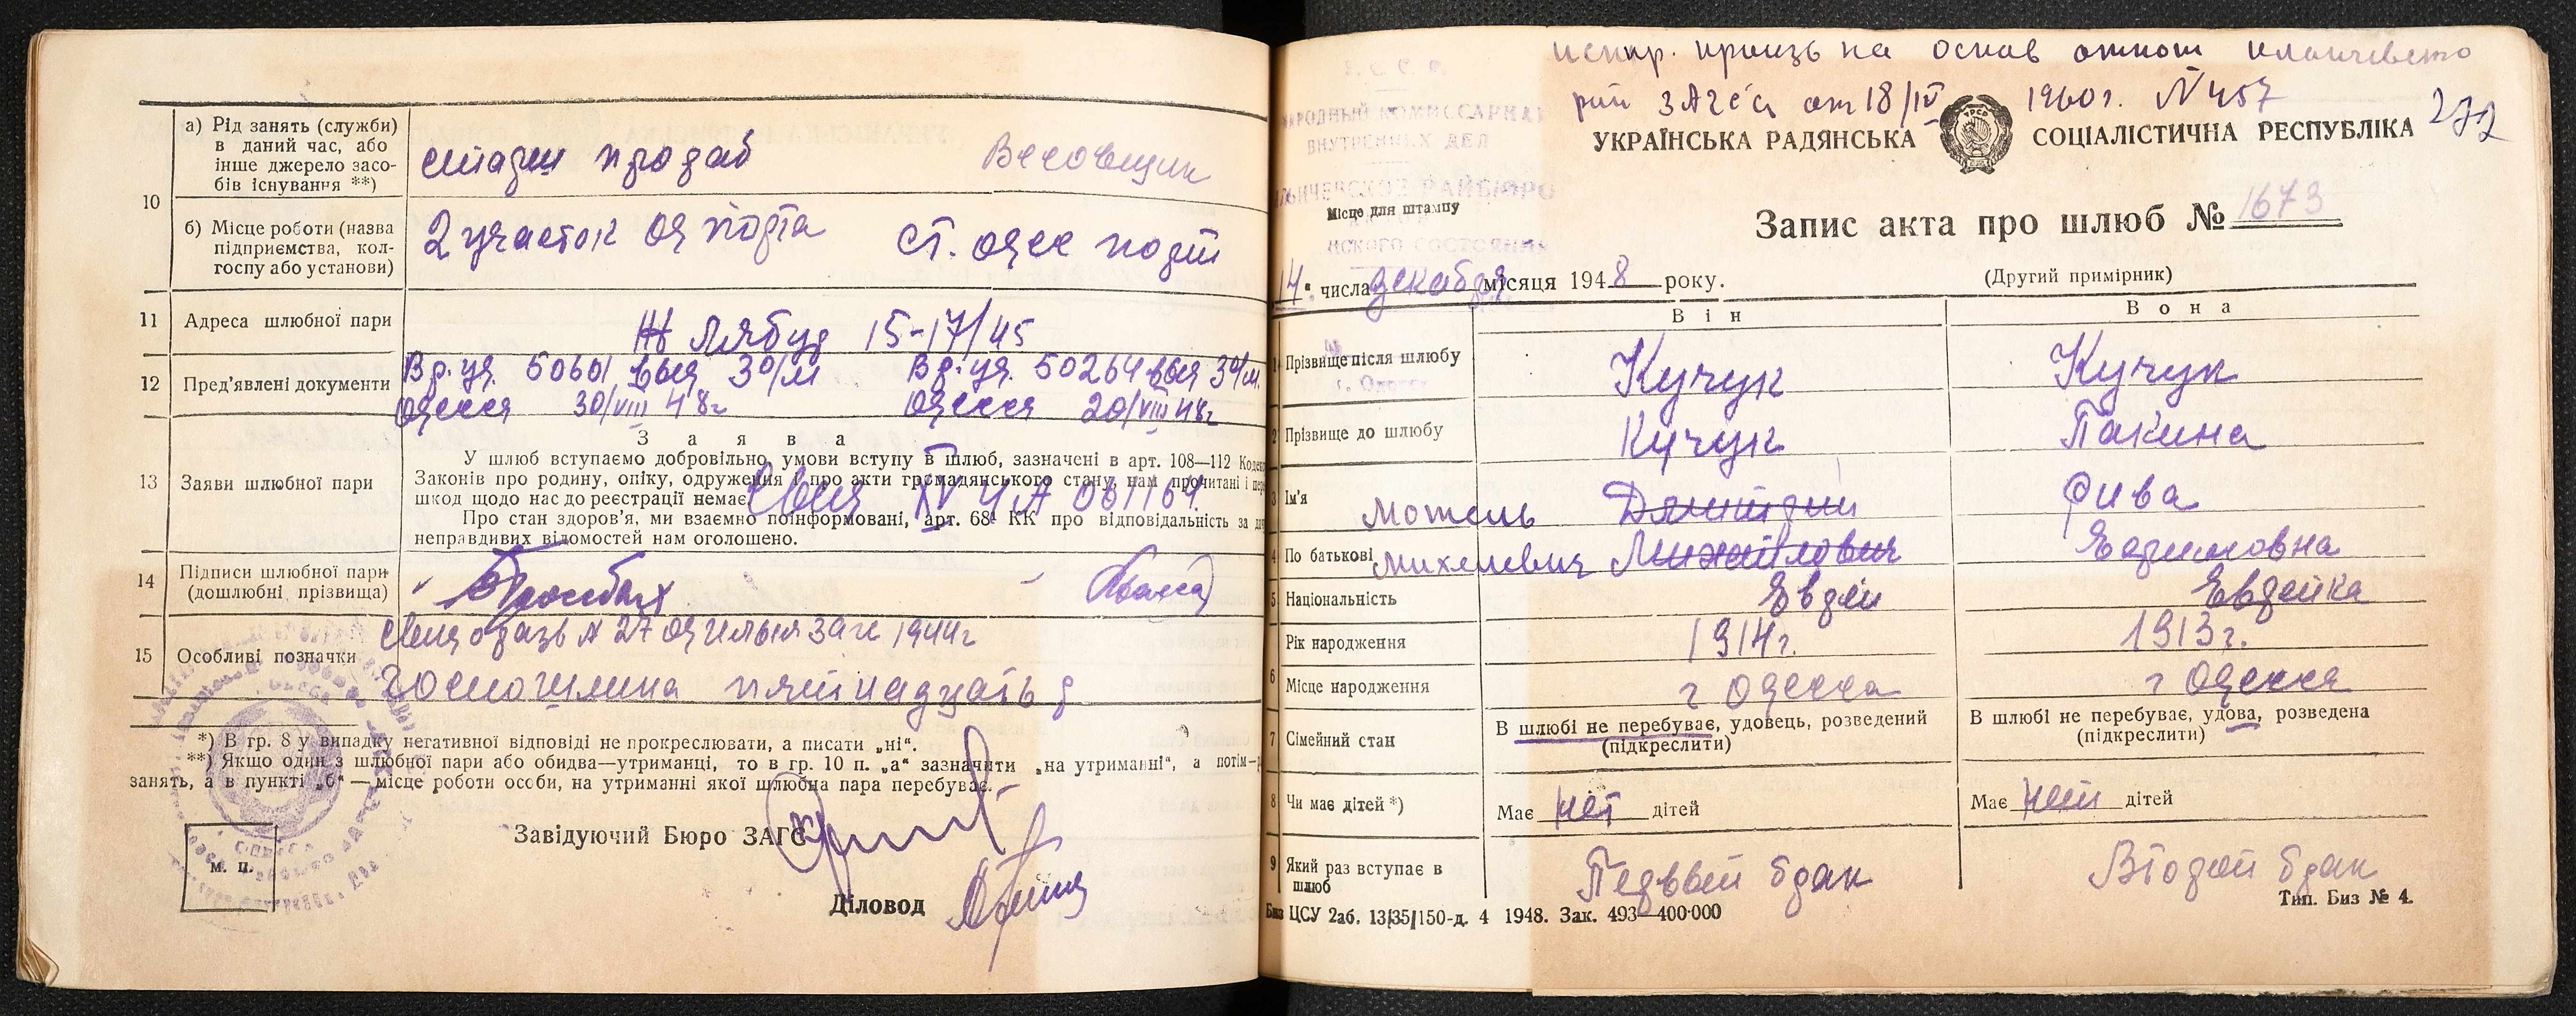 10
а) Рід занять (служби)
в даний час, або
інше джерело засо-
бів існування **)
Весовщик
б) Місце роботи (назва
підприємства, кол-
госпу або установи)
2 участок Од порта
ст. Одес порт
11 Адреса шлюбної пари
15-17/45
12 Пред'явлені документи
Вр. уд. 50601 выд 30/м Вр. уд. 50264 выд 30/м.
Одесса 30/VIII 48г Одесса 20/VIII 48г
З а я в а
13 Заяви шлюбної пари
У шлюб вступаємо добровільно, умови вступу в шлюб, зазначені в арт. 108—112
Законів про родину, опіку, одруження і про акти громадянського стану, нам прочитані і
шкод щодо нас до реєстрації немає.
IV ЧА 061169
Про стан здоров'я, ми взаємно поінформовані, арт. 68¹ КК про відповідальність за
неправдивих відомостей нам оголошено.
14 Підписи шлюбної пари
(дошлюбні прізвища)
15 Особливі позначки
27 1944г
Госпошлина пятнадцать р
*) В гр. 8 у випадку негативної відповіді не прокреслювати, а писати „ні“.
**) Якщо один з шлюбної пари або обидва—утриманці, то в гр. 10 п. „а“ зазначити „на утриманні“, а потім—
занять, а в пункті „б“ — місце роботи особи, на утриманні якої шлюбна пара перебуває.
Завідуючий Бюро ЗАГС
м. п.
Діловод
испр. произв на основ отнош Ильичевского
рай ЗАГСа от 18/IV 1960г. N 457
272
УКРАЇНСЬКА РАДЯНСЬКА СОЦІАЛІСТИЧНА РЕСПУБЛІКА
НАРОДНЫЙ КОМИССАРИАТ
ВНУТРЕННИХ ДЕЛ
Місце для штампу
Запис акта про шлюб № 1673
14 „ числа декабря місяця 1948 року.
(Другий примірник)
Він Вона
1 Прізвище після шлюбу Кучук Кучук
2 Прізвище до шлюбу Кучук Пакина
3 Ім'я Мотель Дмитрий Рива
4 По батькові Михелевич Михайлович
5 Національність Еврей Еврейка
Рік народження 1914г. 1913г.
6 Місце народження г Одесса г Одесса
7 Сімейний стан
В шлюбі не перебуває, удовець, розведений
(підкреслити)
В шлюбі не перебуває, удова, розведена
(підкреслити)
8 Чи має дітей *) Має нет дітей Має нет дітей
9 Який раз вступає в
шлюб
Первый брак Второй брак
ЦСУ 2аб. 13/35/150-д. 4 1948. Зак. 493—400·000
Тип. Биз № 4.